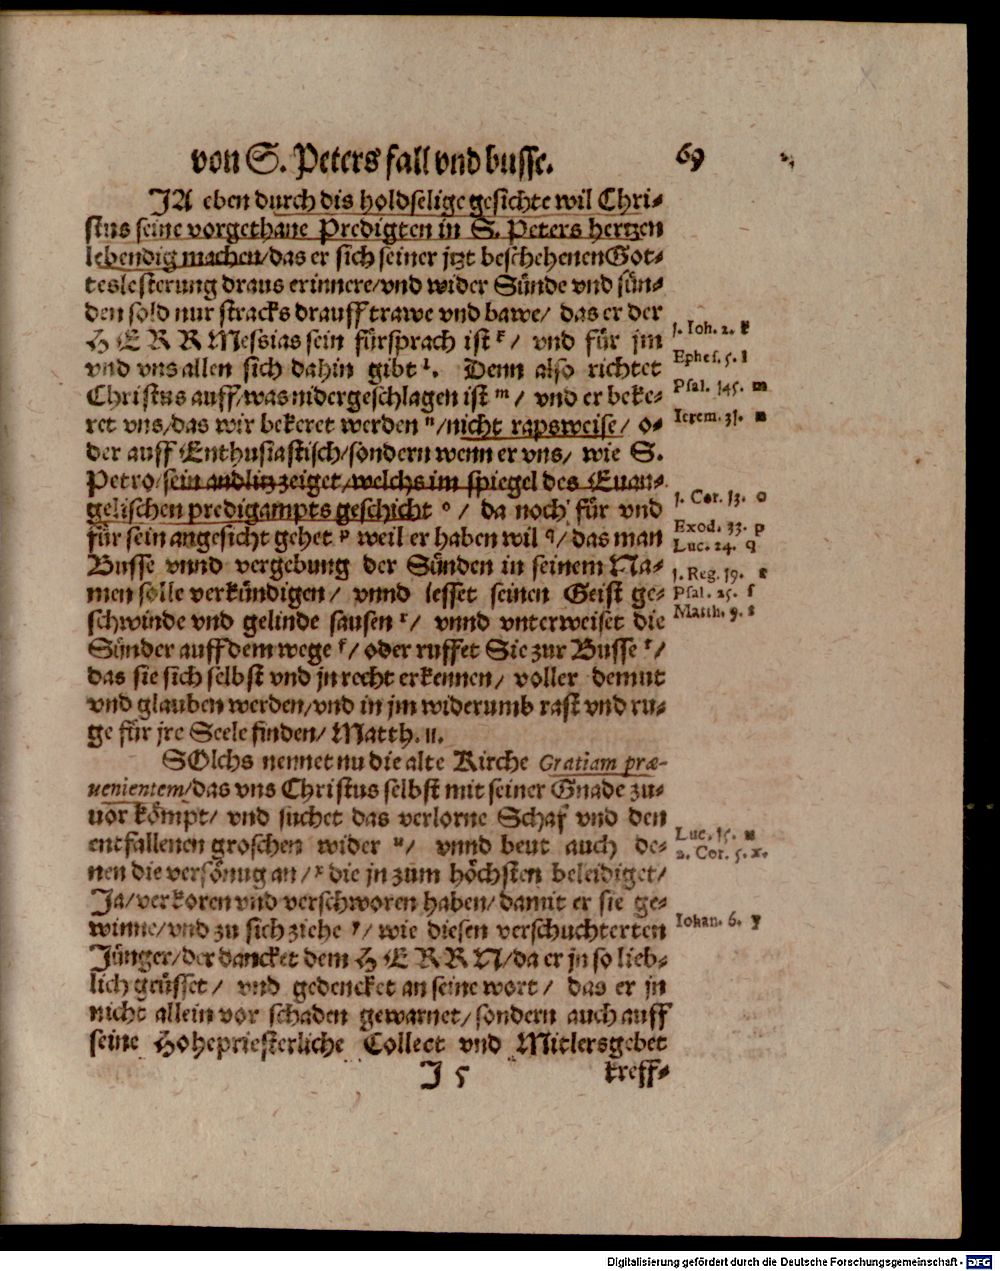 von S. Peters fall vnd busse. 69
JA eben durch dis holdselige gesichte wil Chri-
stus seine vorgethane Predigten in S. Peters hertzen
lebendig machen/das er sich seiner jtzt beschehenen Got-
teslesterung draus erinnere/vnd wider Sünde vnd sün-
den sold nur stracks drauff trawe vnd bawe/ das er der
HERR Messias sein fürsprach ist k/ vnd für jm
j. Ioh. 2. k
vnd vns allen sich dahin gibt l. Denn also richtet
Ephes. 5. l
Christus auff/was nidergeschlagen ist m/ vnd er beke-
Psal. 145. m
ret vns/das wir bekeret werden n/nicht rapsweise/ o-
Ierem. 31. n
der auff Enthusiastisch/sondern wenn er vns/ wie S.
Petro/sein andlitz zeiget/welchs im spiegel des Euan-
gelischen predigampts geschicht o/ da noch für vnd
j. Cor. 13. o
für sein angesicht gehet p weil er haben wil q/das man
Exod. 33. p
Luc. 24. q
Busse vnnd vergebung der Sünden in seinem Na-
j. Reg. 19. r
men solle verkündigen/ vnnd lesset seinen Geist ge-
Psal. 25. ſ
schwinde vnd gelinde sausen r/ vnnd vnterweiset die
Matth. 9. t
Sünder auff dem wege ſ/oder ruffet Sie zur Busse t/
das sie sich selbst vnd jn recht erkennen/ voller demut
vnd glauben werden/vnd in jm widerumb rast vnd ru-
ge für jre Seele finden/ Matth. 11.
SOlchs nennet nu die alte Kirche Gratiam præ-
uenientem/das vns Christus selbst mit seiner Gnade zu-
uor kömpt/ vnd suchet das verlorne Schaf vnd den
entfallenen groschen wider u/ vnnd beut auch de-
Luc. 15. u
2. Cor. 5. x.
nen die versönug an/x die jn zum höchsten beleidiget/
Ja/verkoren vnd verschworen haben/damit er sie ge-
winne/vnd zu sich ziehe y/ wie diesen verschuchterten
Iohan. 6. y
Jünger/der dancket dem HERRN/da er jn so lieb-
lich grüsset/ vnd gedencket an seine wort/ das er jn
nicht allein vor schaden gewarnet/sondern auch auff
seine Hohepriesterliche Collect vnd Mitlersgebet
J 5 kreff-
Digitalisierung gefördert durch die Deutsche Forschungsgemeinschaft - DFG